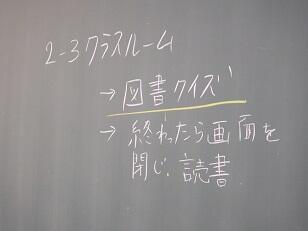 2-3クラスルーム
→図書クイズ
→終わったら画面を
閉じ、読書